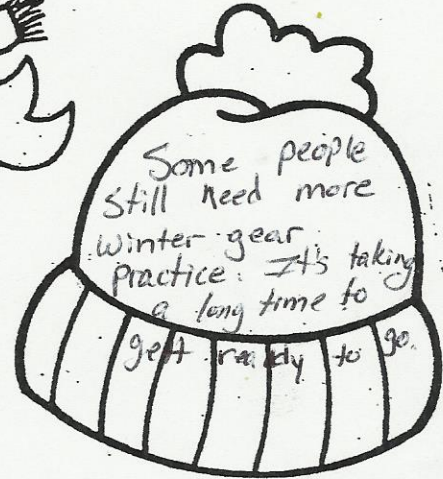 Some people
still need more
winter gear
practice. It's taking
a long time to
get ready to go.